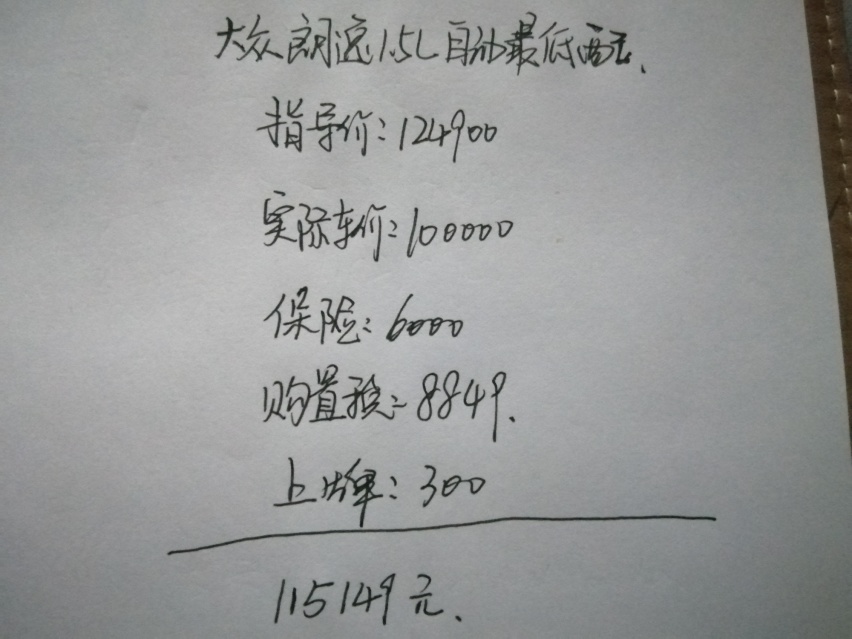 大众朗逸1.5L自动最低配.
指导价:124900
实际车价:100000
保险:6000
购置税:8849.
上牌:300
115149元.